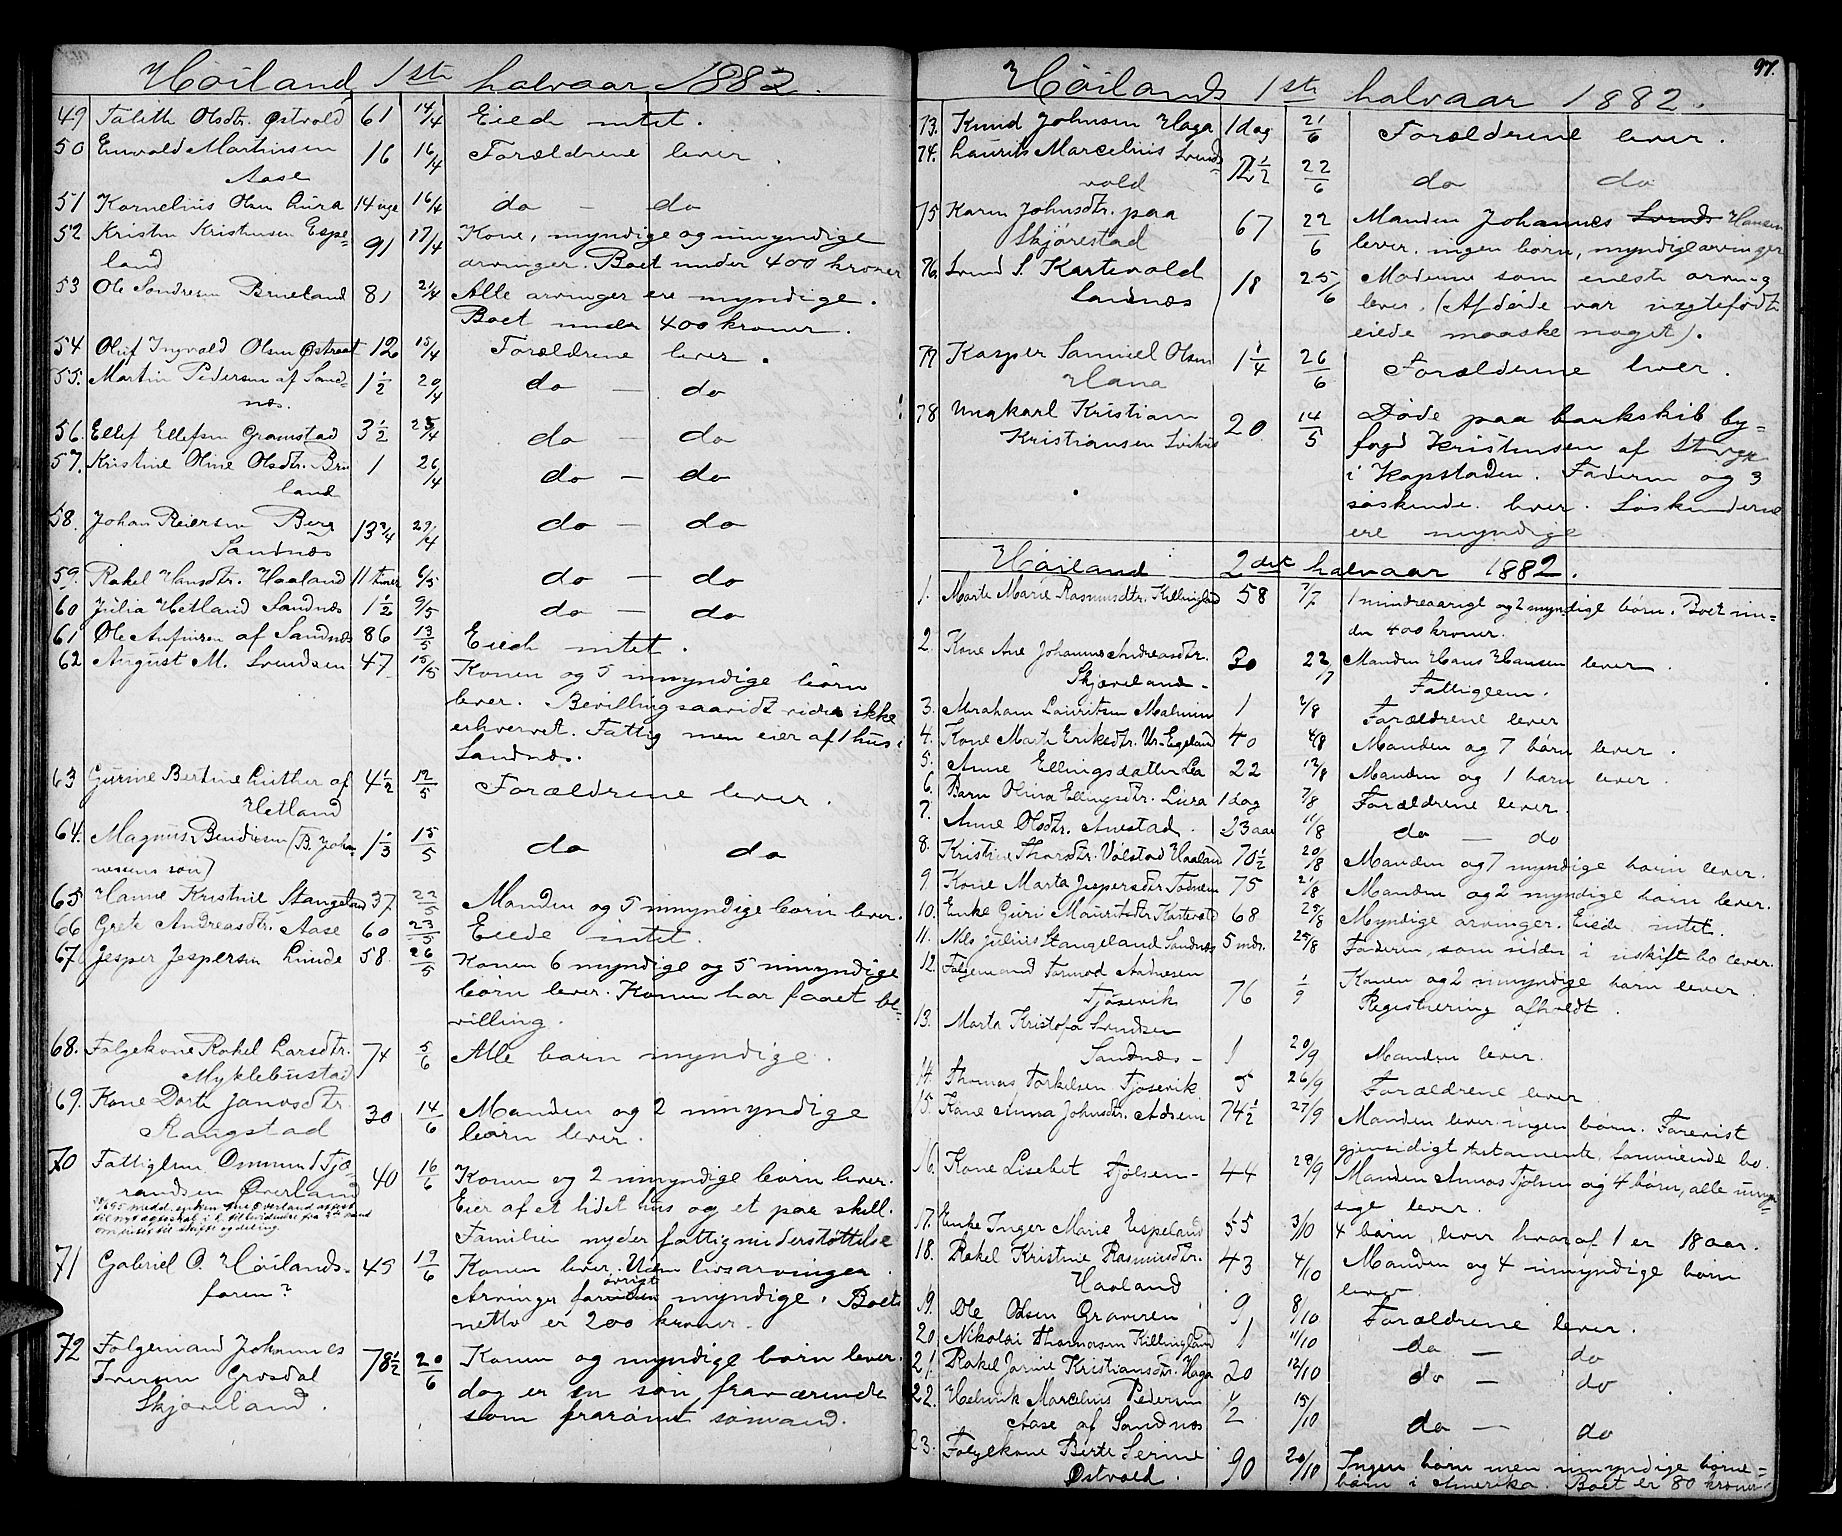 Høiland 1ste halvaar 1882.
49 Talith Olsdtr. Østvold 61 14/4 Eiede intet.
50 Enevald Martinsen
Aase 16 16/4 Forældrene lever.
51 Kornelius Olsen Lura 14 uge 16/4 do — do
52 Kristen Kristensen Espe=
land 91 17/4 Kone, myndige og umyndige
arvinger. Boet under 400 kroner
53 Ole Sondresen Brueland 81 21/4 Alle arvinger ere myndige.
Boet under 400 kroner.
54 Oluf Ingvald Olsen Østraat 12 15/4 Forældrene lever.
55. Martin Pedersen af Sand=
næs. 1 1/2 20/4 do — do
56. Ellef Ellefsen Gramstad 3 1/2 25/4 do — do
57. Kristine Oline Olsdtr. Brue
land 1 26/4 do — do
58. Johan Reiersen Berg
Sandnæs 13 3/4 29/4 do — do
59. Rakel Hansdtr. Haaland 11 timer 6/5 do — do
60 Julia Hetland Sandnæs 1 1/2 9/5 do — do
61 Ole Anfinsen af Sandnæs 86 13/5 Eiede intet.
62 August M. Svendsen 47 15/5 Konen og 5 umyndige børn
lever. Bevilling saavidt vides ikke
erhvervet. Fattig men eier af 1 hus i
Sandnæs.
63 Gurine Bertine Luther af
Hetland 4 1/2 12/5 Forældrene lever.
64. Magnus Bendiksen (B. Joha
nessens søn) 1 1/3 15/5 do do
65 Hanne Kristine Stangeland 37 22/5 Manden og 5 umyndige børn lever.
66 Grete Andreasdtr. Aase 60 23/5 Eiede intet.
67 Jesper Jespersen Linde 58. 26/5 Konen 6 myndige og 5 umyndige
børn lever. Konen har faaet be=
villing.
68. Folgekone Rakel Larsdtr.
Myklebustad 74 5/6 Alle børn myndige.
69. Kone Dorte Janosdtr.
Rangstad 30 14/6 Manden og 2 umyndige
børn lever.
70 Fattiglem Osmund Tjæ=
randsen Øverland 40 16/6 Konen og 2 umyndige børn lever.
Eier af et lidet hus og et par skill.
Familien nyder fattigunderstøttelse
71 Gabriel O. Høilands-
foren? 45 19/6 Konen lever. Uden livsarvinger
Arvinger forøvrigt myndige. Boets
netto er 200 kroner.
72 Folgemand Johannes
Iversen Grosdal
Skjæveland. 78 1/2 20/6 Konen og myndige børn lever.
dog er en søn fraværende
som frarømt sømand.
97.
Høilands 1ste halvaar 1882.
73. Knud Johnsen Haga 1 dag 21/6 Forældrene lever.
74. Laurits Marcelius Svends
vold 12 1/2 22/6 do do
75 Karen Johnsdtr. paa
Skjørestad 67 22/6 Manden Johannes Svends Hansen
lever. ingen børn, myndige arvinger
76. Svend S. Kartevold
Sandnæs 18 25/6 Moderen som eneste arving
lever. (Afdøde var uægtefødt
eiede maaske noget).
77 Kasper Samuel Olsen
Hana 1 1/4 26/6 Forældrene lever.
78 Ungkarl Kristian
Kristiansen 20 14/5 Døde paa barkskib by=
fogd Kristensen af
i Kapstaden. Faderen og 3
søskende lever. Søskenderne
ere myndige
Høiland 2det halvaar 1882.
1. Marte Marie Rasmusdtr. Killingland 58 7/7 1 mindreaarigt og 2 myndige børn. Boet un=
der 400 kroner.
2. Kone Ane Johanne Andreasdtr.
Skjæveland - 30 22/7 Manden Hans Hansen lever.
Fattiglem.
3. Abraham Lauritsen Malmin 1 2/8 Forældrene lever
4. Kone Marte Eriksdtr. Ur. Egeland 40 4/8 Manden og 7 børn lever.
5. Anne Ellingsdatter Lea 22 12/8 Manden og 1 barn lever.
6. Barn Olina Ellingsdtr. Lura 1 dag 7/8 Forældrene lever
7. Anne Olsdtr. Auestad. 23 aar 11/8 do — do
8. Kristine Thorsdtr. Vølstad Haaland 70 1/2 20/8 Manden og 7 myndige børn lever.
9 Kone Marta Jespersdtr Todnem 75 21/8 Manden og 2 myndige børn lever.
10. Enke Guri Mauritsdtr Kartevold 68 29/8 Myndige arvinger. Eiede intet.
11. Nils Julius Stangeland Sandnæs 5 mdr. 25/8 Faderen, som sidder i uskiftet bo lever.
12. Folgemand Tormod Andresen
Tjøsevik 76 1/9 Konen og 2 umyndige børn lever.
Registrering afholdt.
13. Marta Kristofa Svendsen
Sandnæs - 1 20/9 Manden lever.
14. Thomas Torkelsen Tjøsevik 5 26/9 Forældrene lever
15. Kone Anna Johnsdtr. Adsem 74 1/2 27/9 Manden lever ingen børn. Forevist
gjensidigt testamente, bo.
16. Kone Lisebet Tjølsen - 44 29/9 Manden Annas Tjølsen og 4 børn, alle umyn=
dige lever.
17. Enke Inger Marie Espeland 55 3/10 4 børn lever hvoraf 1 er 18 aar.
18. Rakel Kristine Rasmusdtr.
Haaland 43 4/10 Manden og 4 umyndige børn
lever
19. Ole Olsen Graveren 9 8/10 Forældrene lever.
20 Nikolai Thomassen Killingland 1 11/10 do — do
21. Rakel Jorine Kristiansdtr. Haga 20 12/10 do — do
22. Hedevik Marcelius Pedersen
Aase af Sandnæs 1/2 15/10 do — do
23. Folgekone Berte Serine
Østvold. 90 20/10 Ingen børn men umyndige børne=
børn i Amerika. Boet er 80 kroner